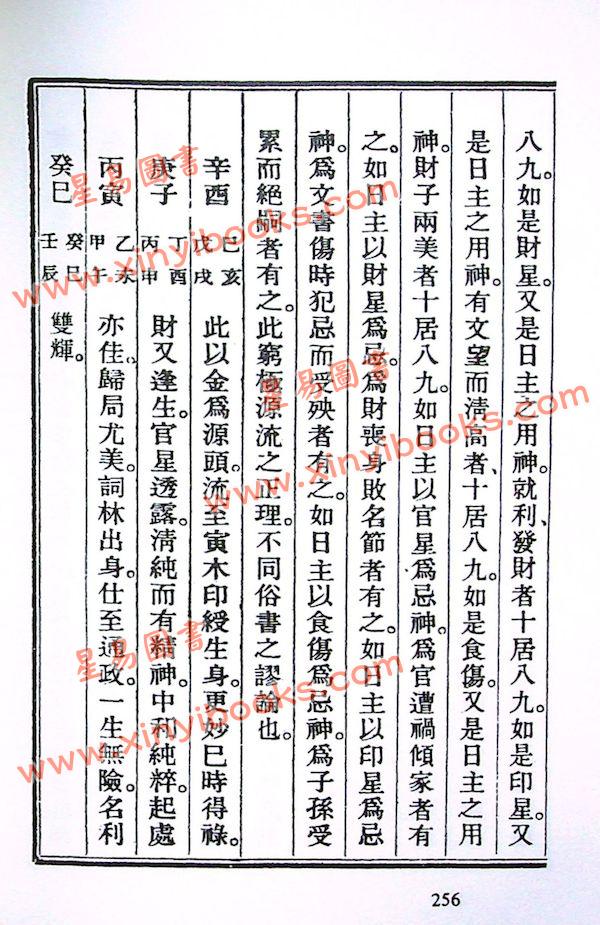 八九。如是財星。又是日主之用神。就利、發財者十居八九。如是印星。又
是日主之用神。有文望而淸高者、十居八九。如是食傷。又是日主之用
神。財子兩美者十居八九。如日主以官星爲忌神。爲官遭禍傾家者有
之。如日主以財星爲忌。爲財喪身敗名節者有之。如日主以印星爲忌
神。爲文書傷時犯忌而受殃者有之。如日主以食傷爲忌神。爲子孫受
累而絕嗣者有之。此窮極源流之正理。不同俗書之謬論也。
辛酉 己亥 戊戌 此以金爲源頭。流至寅木印綬生身。更妙巳時得祿。
庚子 丁酉 丙申 財又逢生。官星透露。淸純而有精神。中和純粹。起處
丙寅 乙未 甲午 亦佳。歸局尤美。詞林出身。仕至通政。一生無險。名利
癸巳 癸巳 壬辰 雙輝。
256
星易圖書
www.xinyibooks.com
星易圖書
www.xinyibooks.com
星易圖書
www.xinyibooks.com